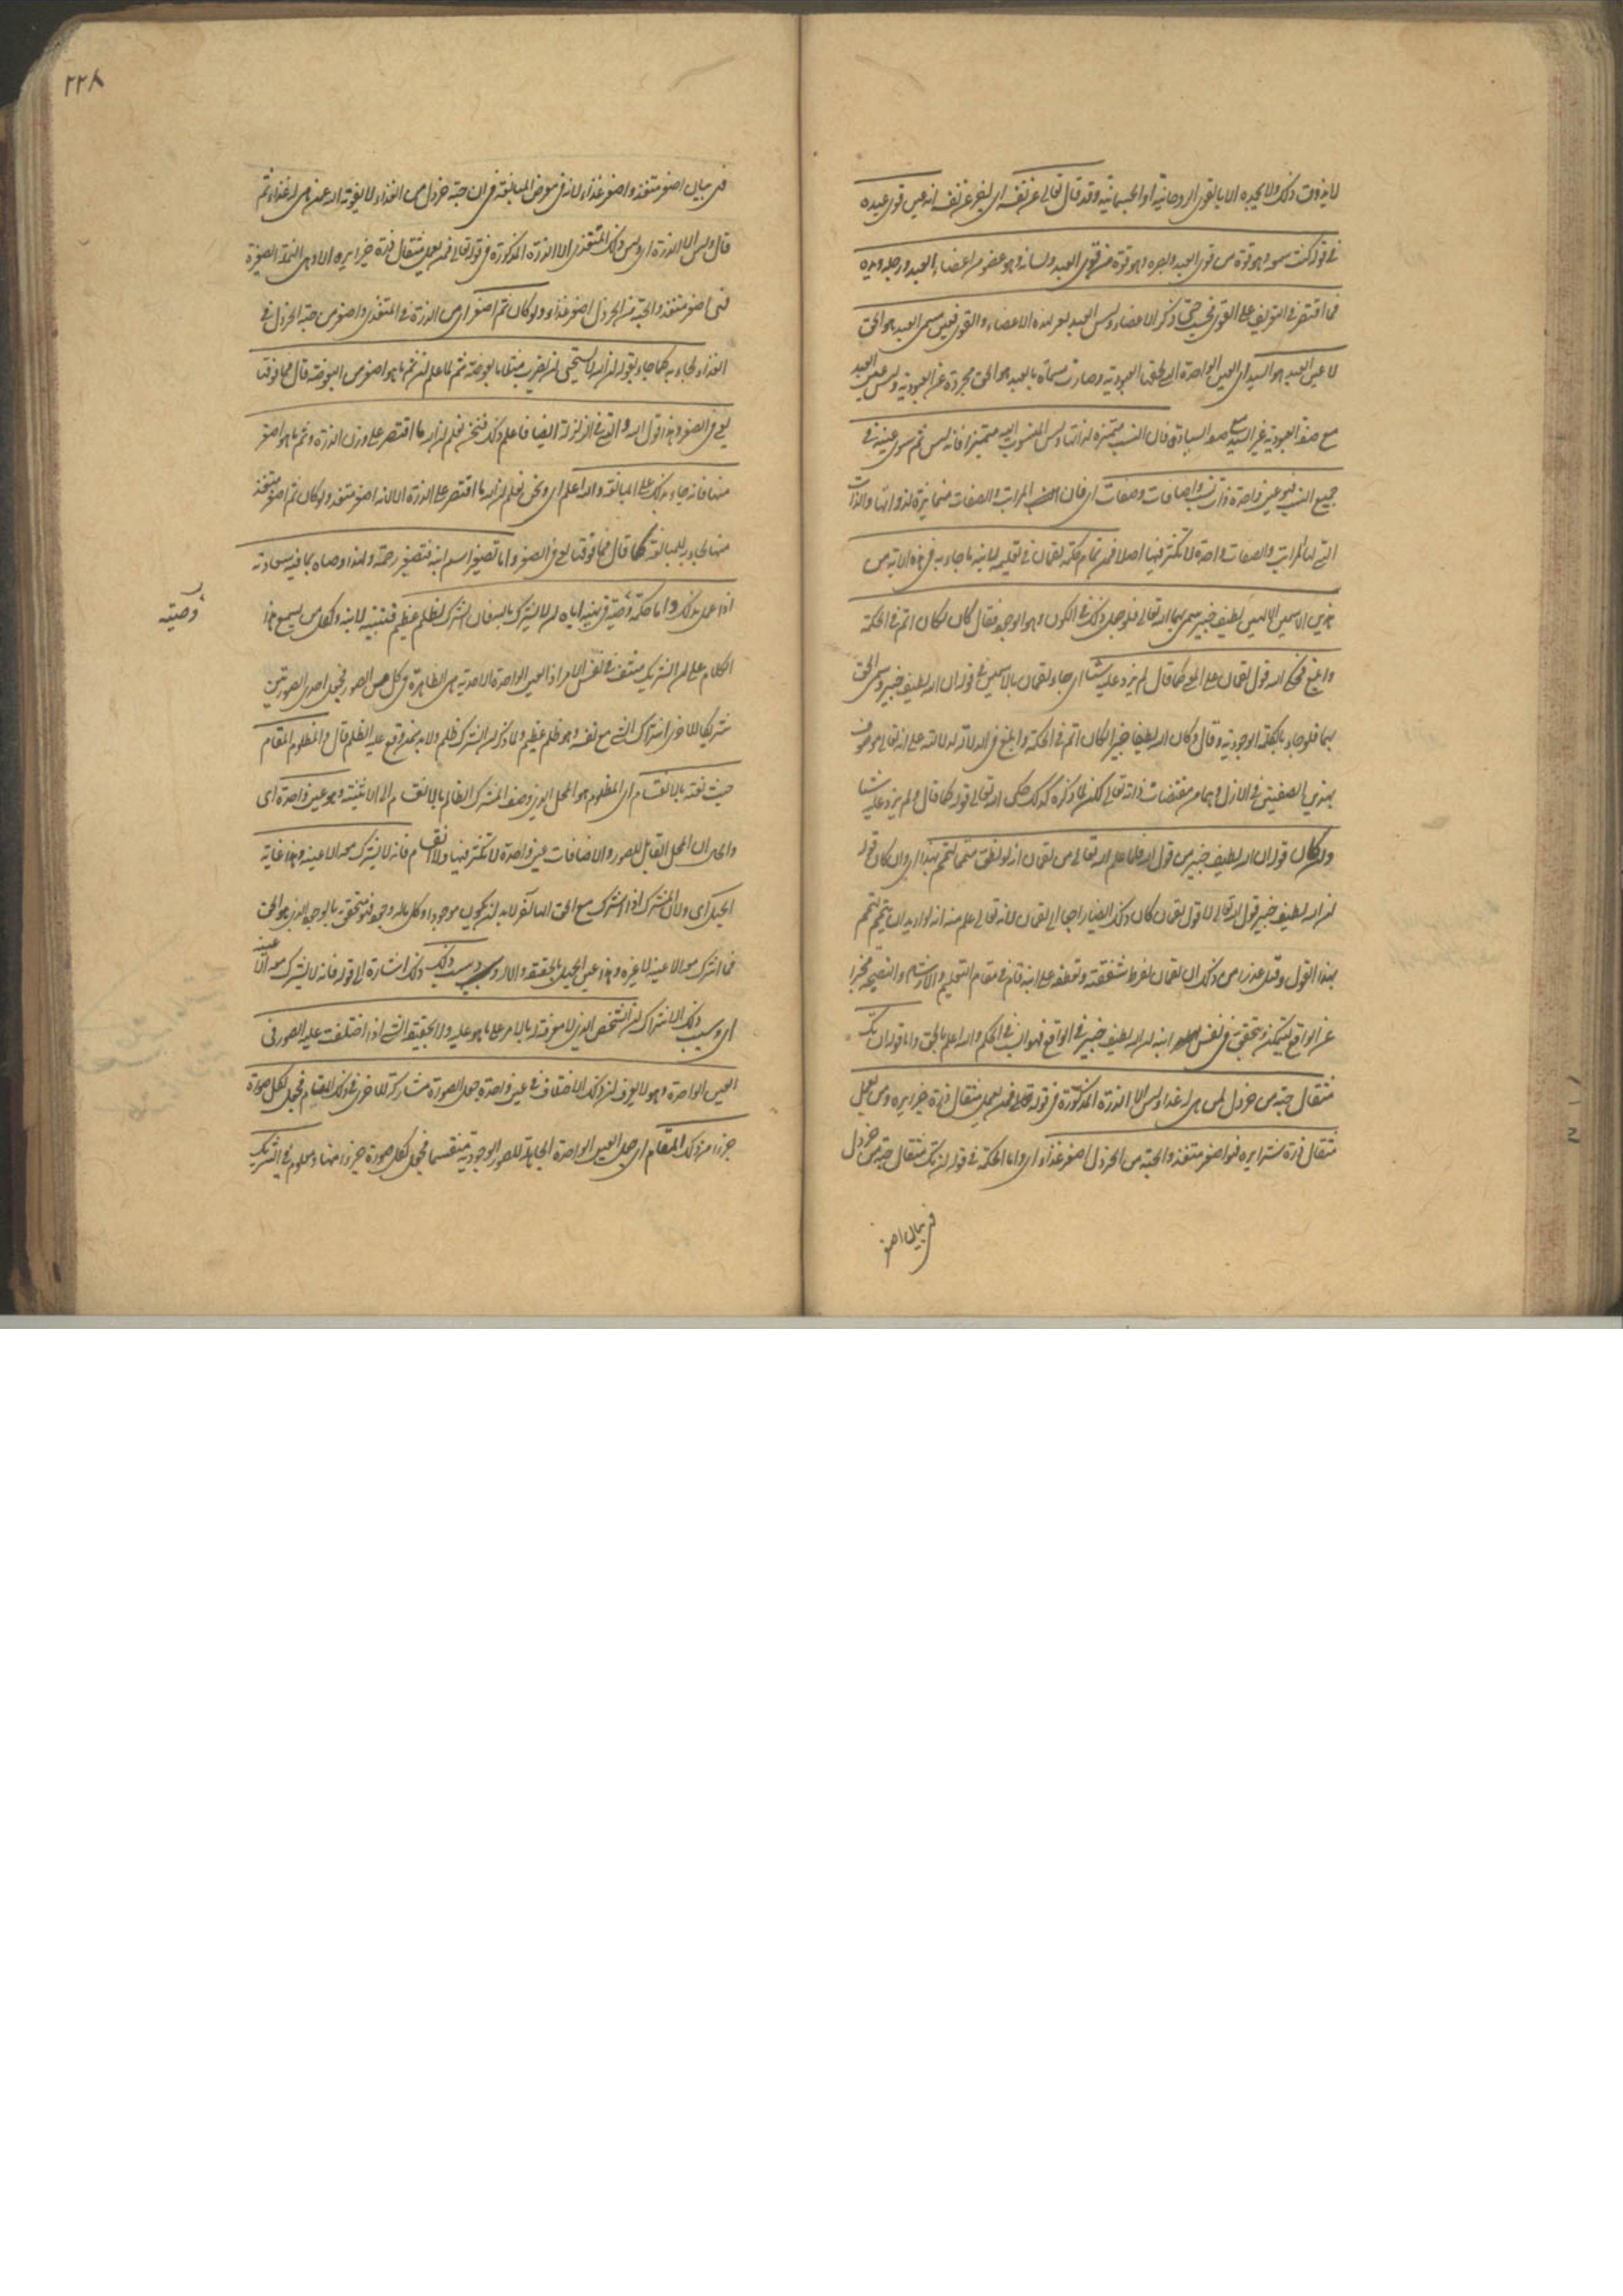 لا يذوق ذلك ولا يجده الا بالقوى الروحانية او الجسمانية وقد قال تعالى عن نفسه اى ليخبر عن نفسه انه عين قوى عبده
فى قوله كنت سمعه وهو قوة من قوى العبد وبصره وهو قوة من قوى العبد ولسانه وهو عضو من اعضاء العبد ورجله ويده
فما اقتصر فى التعريف على القوى فحسب حتى ذكر الاعضاء وليس العبد بغير لهذه الاعضاء والقوى فعين مسمى العبد هو الحق
لا عين العبد هو السيد اى العين الواحدة التى لحقها العبودية وصارت مسماة بالعبد هو الحق مجردة عن العبودية وليس عين العبد
مع صفة العبودية عين السيد مع صفة السيادة فان النسب متميزة لذاتها وليس المنسوب اليه متميزا فانه ليس ثم سوى عينه فى
جميع النسب فهو عين واحدة ذات نسب واضافات وصفات اى فان المراتب والصفات متمايزة لذواتها والذات
التى لها المراتب والصفات واحدة لا تكثر فيها اصلا فمن تمام حكمة لقمان فى تعليمه لابنه ما جاء به فى هذه الاية من
هذين الاسمين الالهيين لطيف خبير سمى بهما الله تعالى فلو جعل ذلك فى الكون وهو الوجود فقال كان لكان اتم فى الحكمة
وابلغ فحكى الله قول لقمان على المعنى كما قال لم يزد عليه شيئا اى جاء لقمان بالاسمين فى قوله ان الله لطيف خبير وسمى الحق
بهما فلو جاء بالكلمة الوجودية وقال وكان الله لطيفا خبيرا لكان اتم فى الحكمة وابلغ فى الدلالة لدلالته على انه تعالى موصوف
بهذين الصفتين فى الازل وهما من مقتضيات ذاته تعالى لكن لما ذكره كذلك حكى الله تعالى قوله كما قال ولم يزد عليه شيئا
وان كان قوله ان الله لطيف خبير من قول الله فلما علم الله تعالى من لقمان انه لو نطق متمما لتمم بهذا اى وان كان قوله
ان الله لطيف خبير قول الله تعالى لا قول لقمان كان ذلك ايضا راجعا الى لقمان لانه تعالى علم منه انه لو اراد ان يتمم لتمم
بهذا القول وقيل عذرا من ذلك ان لقمان لفرط شفقته وتعطفه على ابنه قام فى مقام التعليم والارشاد والنصيحة مخبرا
عن الواقع ليتمكن ويتحقق فى نفس ابنه ان الله لطيف خبير فى الواقع فهو انسب فى الحكم والله اعلم بالحق واما قوله ان تك
مثقال حبة من خردل لمن هى له غذاء وليس الا الذرة المذكورة فى قوله تعالى فمن يعمل مثقال ذرة خيرا يره ومن يعمل
مثقال ذرة شرا يره فهو اصغر متغذ والحبة من الخردل اصغر غذاء اى واما الحكمة فى قوله ان تك مثقال حبة من خردل
فى بيان اصغر
٢٢٨
فى بيان اصغر متغذ واصغر غذاء لانه فى معرض المبالغة فى ان حبة خردل من الغذاء لا يفوته الله عمن هى له غذاء ثم
قال وليس الا الذرة اى وليس ذلك المتغذى الا الذرة المذكورة فى قوله تعالى فمن يعمل مثقال ذرة خيرا يره الا وهى النملة الصغيرة
فهى اصغر متغذ والحبة من الخردل اصغر غذاء ولو كان ثم اصغر اى من الذرة فى المتغذى واصغر من حبة الخردل فى
الغذاء لجاء به كما جاء بقوله ان الله لا يستحيى ان يضرب مثلا ما بعوضة ثم لما علم ان ثم ما هو اصغر من البعوضة قال فما فوقها
يعنى فى الصغر وهذا قول الله والتى فى الزلزلة ايضا فاعلم ذلك فنحن نعلم ان الله ما اقتصر على وزن الذرة وثم ما هو اصغر
منها فانه جاء بذلك على المبالغة والله اعلم اى ونحن نعلم ان الله ما اقتصر على الذرة الا لانه اصغر متغذ ولو كان ثم اصغر متغذ
منها لجاء به للمبالغة كما قال فما فوقها يعنى فى الصغر واما تصغير اسم ابنه فتصغير رحمة ولهذا وصاه بما فيه سعادته
اذا عمل بذلك واما حكمة وصية فى نهيه اياه ان لا يشرك بالله فان الشرك لظلم عظيم فتنبيه لابنه ولكل من يسمع هذا
وصيته
الكلام على ان الشريك منتف فى نفس الامر اذ العين الواحدة الاحدية هى الظاهرة فى كل من الصور فجعل احدى الصورتين
شريكا للاخرى اشتراك الشئ مع نفسه وهو ظلم عظيم ولما ذكر ان الشرك ظلم ولا بد ممن وقع عليه الظلم قال والمظلوم المقام
حيث نعته بالانقسام اى المظلوم هو المحل الذى وصفه المشرك الظالم بالانقسام الى الاثنينية وهو عين واحدة اى
والحال ان المحل القابل للصور والاضافات عين واحدة لا تكثر فيها ولا انقسام فانه لا يشرك معه الا عينه وهذا غاية
الجهل اى ولان المشرك اذا اشرك مع الحق الها آخر لا بد ان يكون موجودا وكل ماله وجود فهو متحقق بالوجود الذى هو الحق
فما اشرك معه الا عينه لا غيره وهذا عين الجهل بالحقيقة والامر وسبب ذلك ذلك اشارة الى قوله فانه لا يشرك معه الا عينه
اى وسبب ذلك الاشتراك ان الشخص الذى لا معرفة له بالامر على ما هو عليه ولا بحقيقة الشئ اذا اختلفت عليه الصور فى
العين الواحدة وهو لا يعرف ان ذلك الاختلاف فى عين واحدة جعل الصورة مشاركة للاخرى فى ذلك المقام فجعل لكل صورة
جزءا من ذلك المقام اى جعل العين الواحدة القابلة للصور الوجودية منقسما فجعل لكل صورة جزءا منها ومعلوم فى الشريك